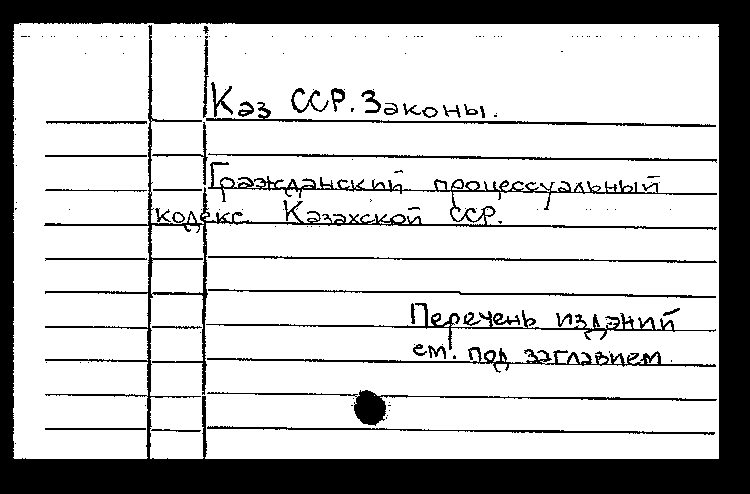 Каз ССР. Законы.
Гражданский процессуальный
кодекс Казахской ССР.
Перечень изданий
см. под заглавием